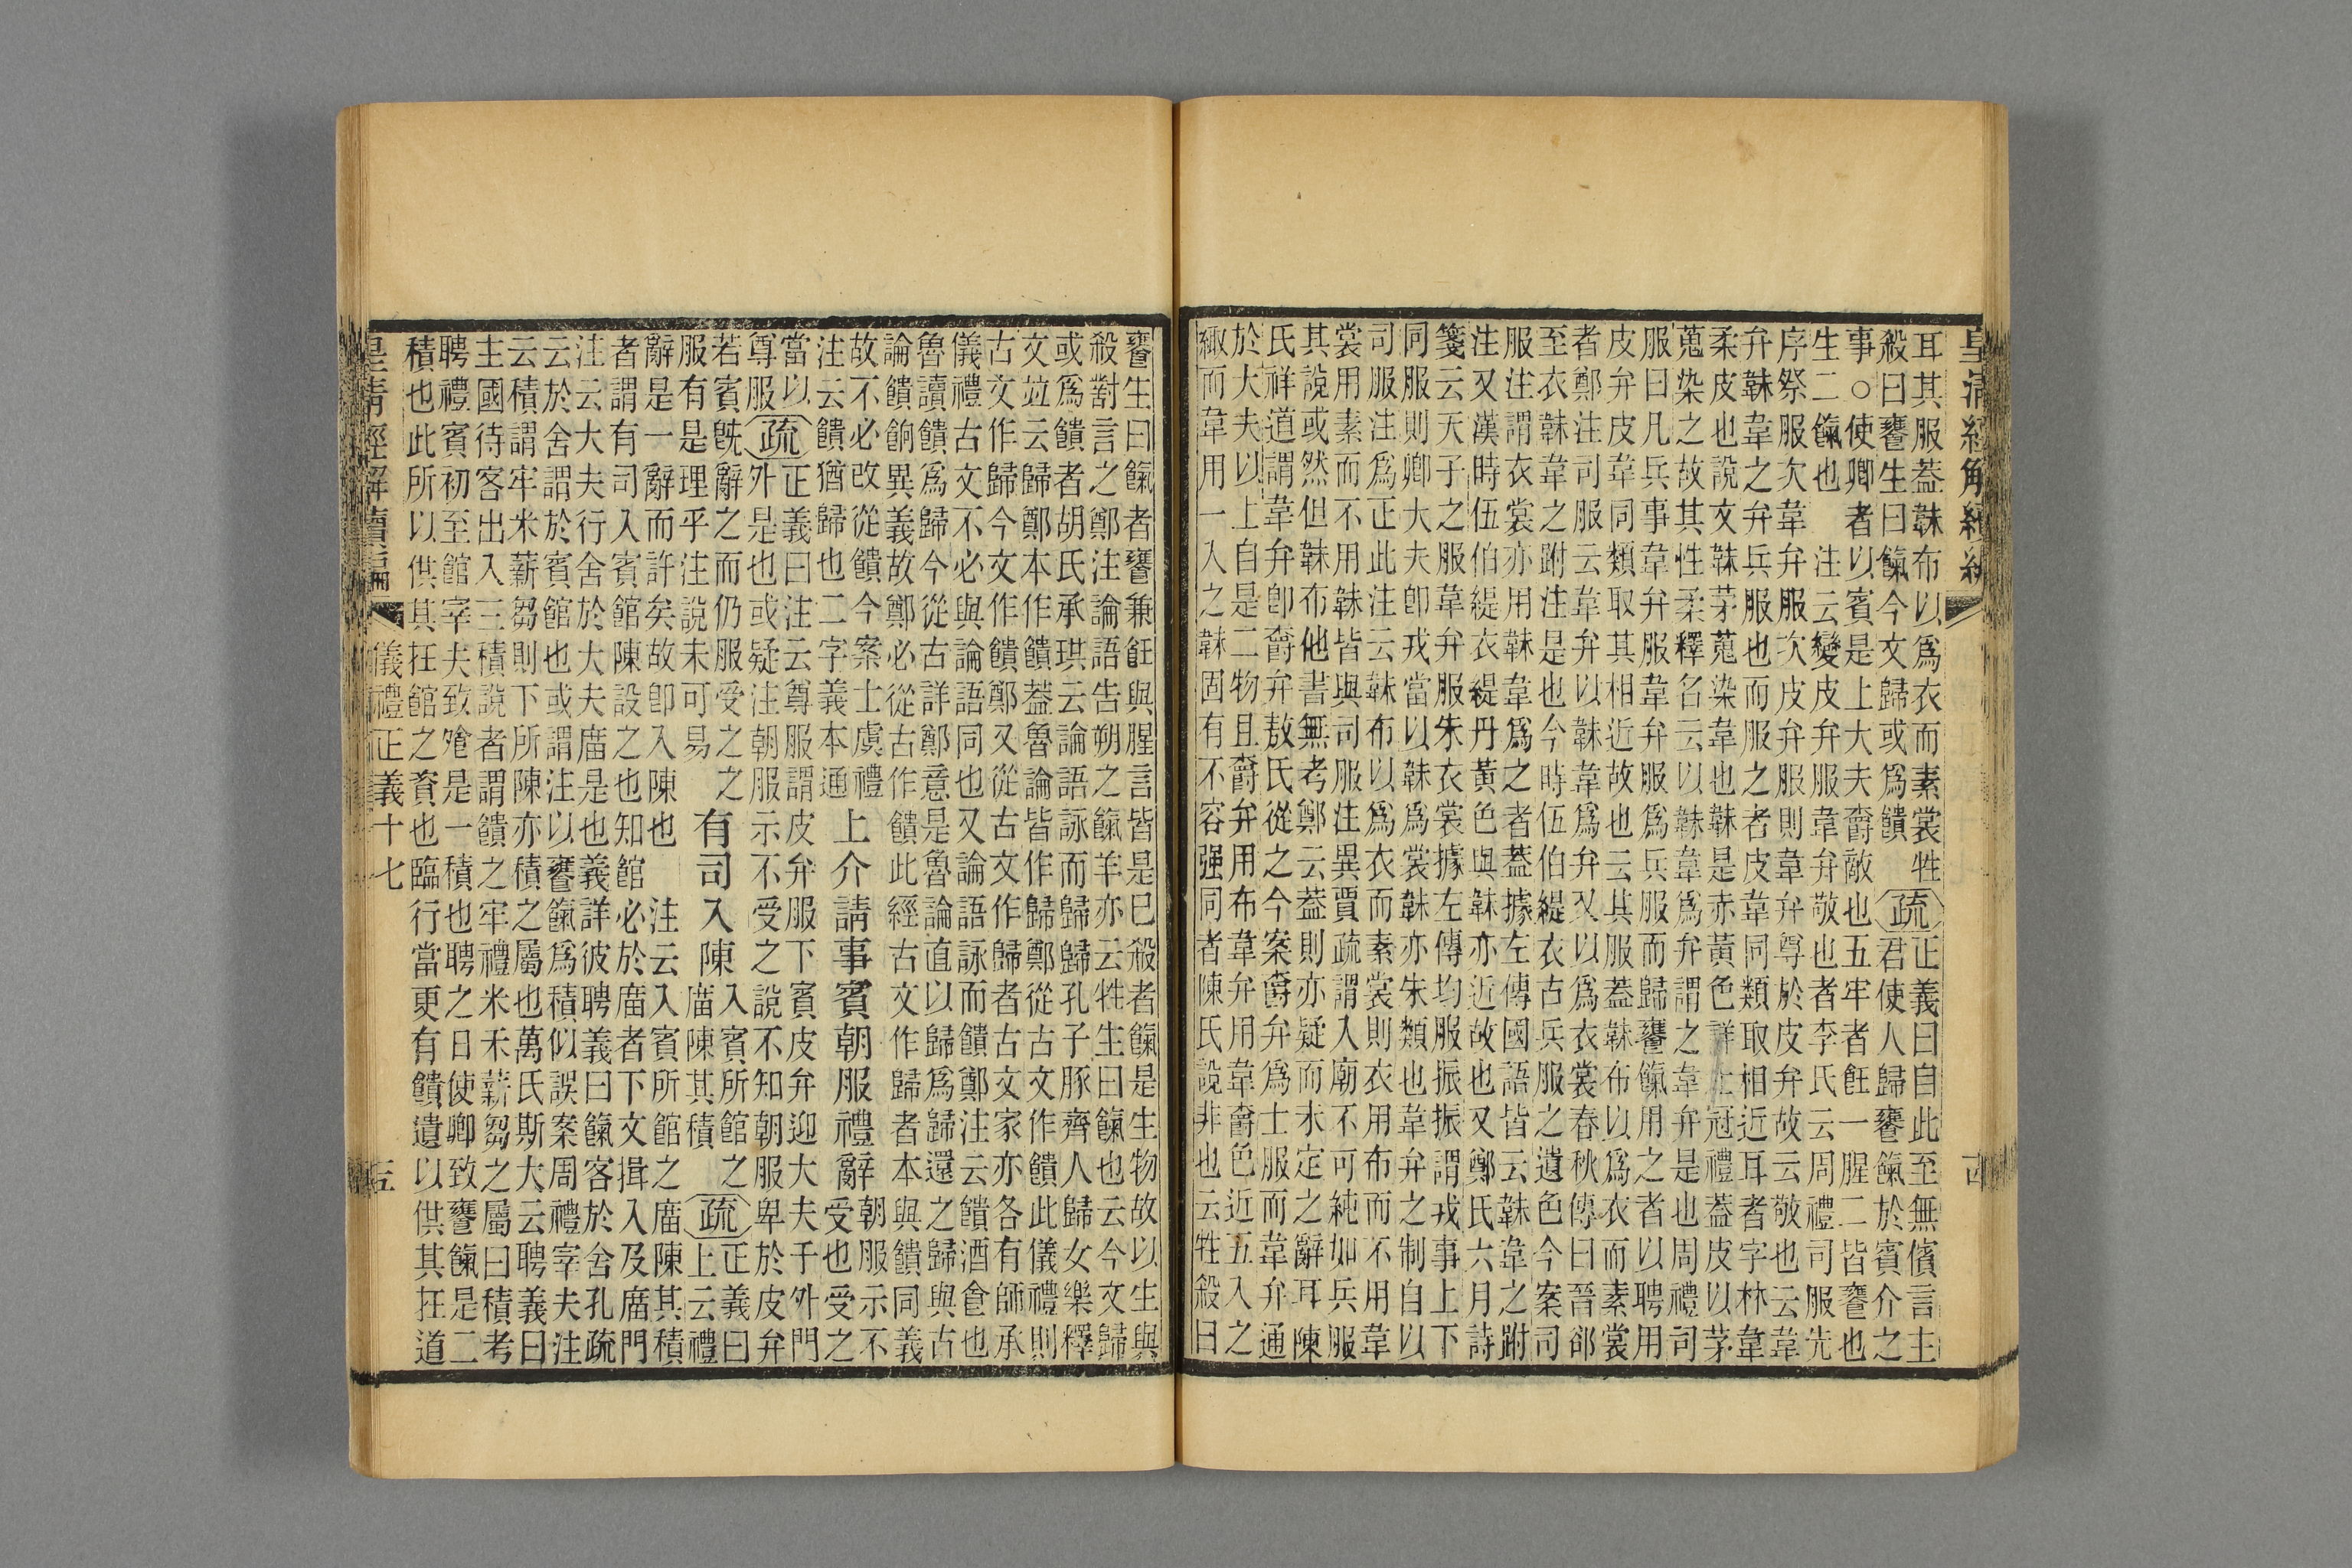 皇清經解續編
耳其服葢韎布以爲衣而素裳牲
殺曰饔生曰餼今文歸或爲饋
疏
正義曰自此至無儐言主
君使人歸饔餼於賓介之
事○使卿者以賓是上大夫爵敵也五牢者飪一腥二皆饔也
生二餼也　注云變皮弁服韋弁敬也者李氏云周禮司服先
序祭服次韋弁服次皮弁服則韋弁尊於皮弁故云敬也云韋
弁韎韋之弁兵服也而服之者皮韋同類取相近耳者字林韋
柔皮也說文韎茅蒐染韋也韎是赤黃色詳士冠禮葢皮以茅
蒐染之故其性柔釋名云以韎韋爲弁謂之韋弁是也周禮司
服曰凡兵事韋弁服韋弁服爲兵服而歸饔餼用之者以聘用
皮弁皮韋同類取其相近故也云其服葢韎布以爲衣而素裳
者鄭注司服云韋弁以韎韋爲弁又以爲衣裳春秋傳曰晉郤
至衣韎韋之跗注是也今時伍伯緹衣古兵服之遺色今案司
服注謂衣裳亦用韎韋爲之者葢據左傳國語皆云韎韋之跗
注又漢時伍伯緹衣緹丹黃色與韎亦近故也又鄭氏六月詩
箋云天子之服韋弁服朱衣裳據左傳均服振振謂戎事上下
同服則卿大夫卽戎當以韎爲裳韎亦朱類也韋弁之制自以
司服注爲正此注云韎布以爲衣而素裳則衣用布而不用韋
裳用素而不用韎皆與司服注異賈疏謂入廟不可純如兵服
其說或然但韎布他書無考鄭云葢則亦疑而未定之辭耳陳
氏祥道謂韋弁卽爵弁敖氏從之今案爵弁爲士服而韋弁通
於大夫以上自是二物且爵弁用布韋弁用韋爵色近五入之
緅而韋用一入之韎固有不容强同者陳氏說非也云牲殺曰
饔生曰餼者饔兼飪與腥言皆是已殺者餼是生物故以生與
殺對言之鄭注論語告朔之餼羊亦云牲生曰餼也云今文歸
或爲饋者胡氏承珙云論語詠而歸歸孔子豚齊人歸女樂釋
文竝云歸鄭本作饋葢魯論皆作歸鄭從古文作饋此儀禮則
古文作歸今文作饋鄭又從古文作歸者古文家亦各有師承
儀禮古文不必與論語同也又論語詠而饋鄭注云饋酒食也
魯讀饋爲歸今從古詳鄭意是魯論直以歸爲歸還之歸與古
論饋餉異義故鄭必從古作饋此經古文作歸者本與饋同義
故不必改從饋今案士虞禮
注云饋猶歸也二字義本通
上介請事賓朝服禮辭
朝服示不
受也受之
當以
尊服
疏
正義曰注云尊服謂皮弁服下賓皮弁迎大夫于外門
外是也或疑注朝服示不受之說不知朝服卑於皮弁
若賓旣辭之而仍服受之之
服有是理乎注說未可易
有司入陳
入賓所館之
庿陳其積
疏
正義曰
上云禮
辭是一辭而許矣故卽入陳也　注云入賓所館之庿陳其積
者謂有司入賓館陳設之也知館必於庿者下文揖入及庿門
注云大夫行舍於大夫庿是也義詳彼聘義曰餼客於舍孔疏
云於舍謂於賓館也或謂注以饔餼爲積似誤案周禮宰夫注
云積謂牢米薪芻則下所陳亦積之屬也萬氏斯大云聘義曰
主國待客出入三積說者謂饋之牢禮米禾薪芻之屬曰積考
聘禮賓初至館宰夫致飧是一積也聘之日使卿致饔餼是二
積也此所以供其在館之資也臨行當更有饋遺以供其在道
皇清經解續編
儀禮正義十七